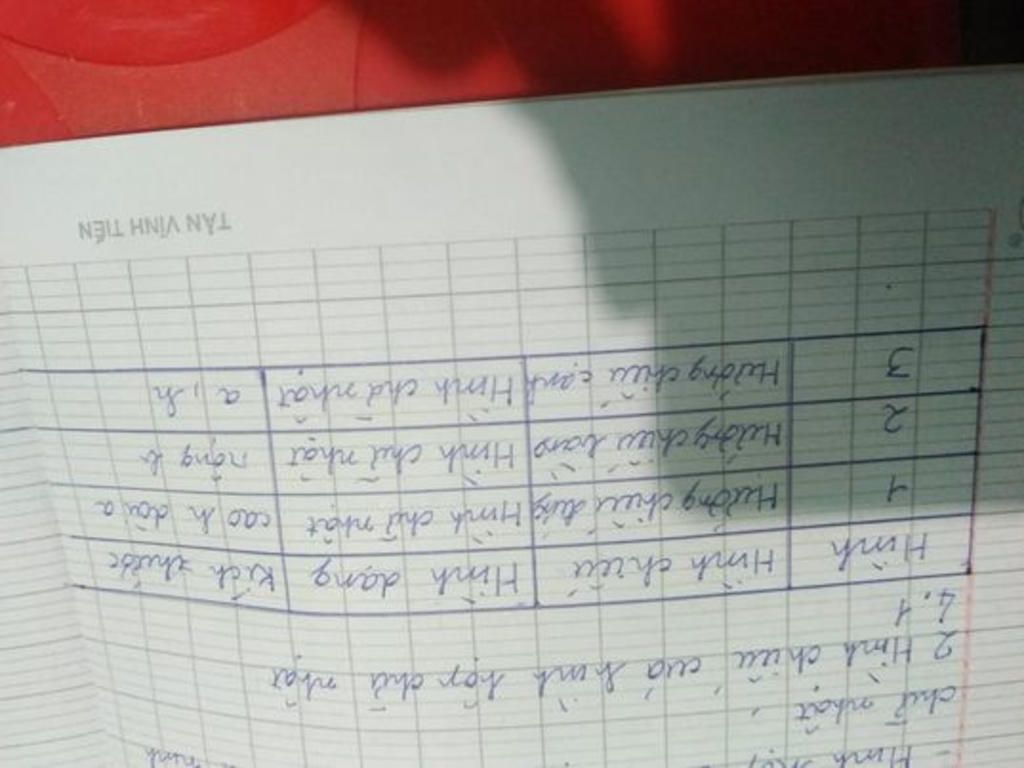 - Hình
chữ nhật.
2 Hình chiếu của hình hộp chữ nhật
4.1
Hình Hình chiếu Hình dạng Kích thước
1 Hướng chiếu đứng Hình chữ nhật cao h dài a
2 Hướng chiếu bằng Hình chữ nhật rộng b
3 Hướng chiếu cạnh Hình chữ nhật a, h
TÂN VĨNH TIẾN